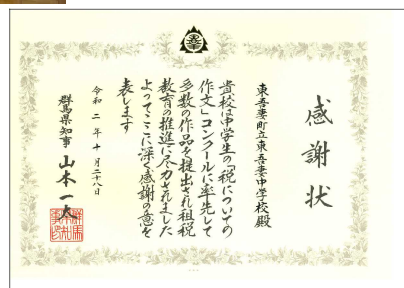 感謝状
東吾妻町立東吾妻中学校殿
貴校は中学生の「税についての
作文」コンクールに率先して
多数の作品を提出され租税
教育の推進に尽力されました
よってここに深く感謝の意を
表します
令和二年十月二十八日
群馬県知事 山本一太